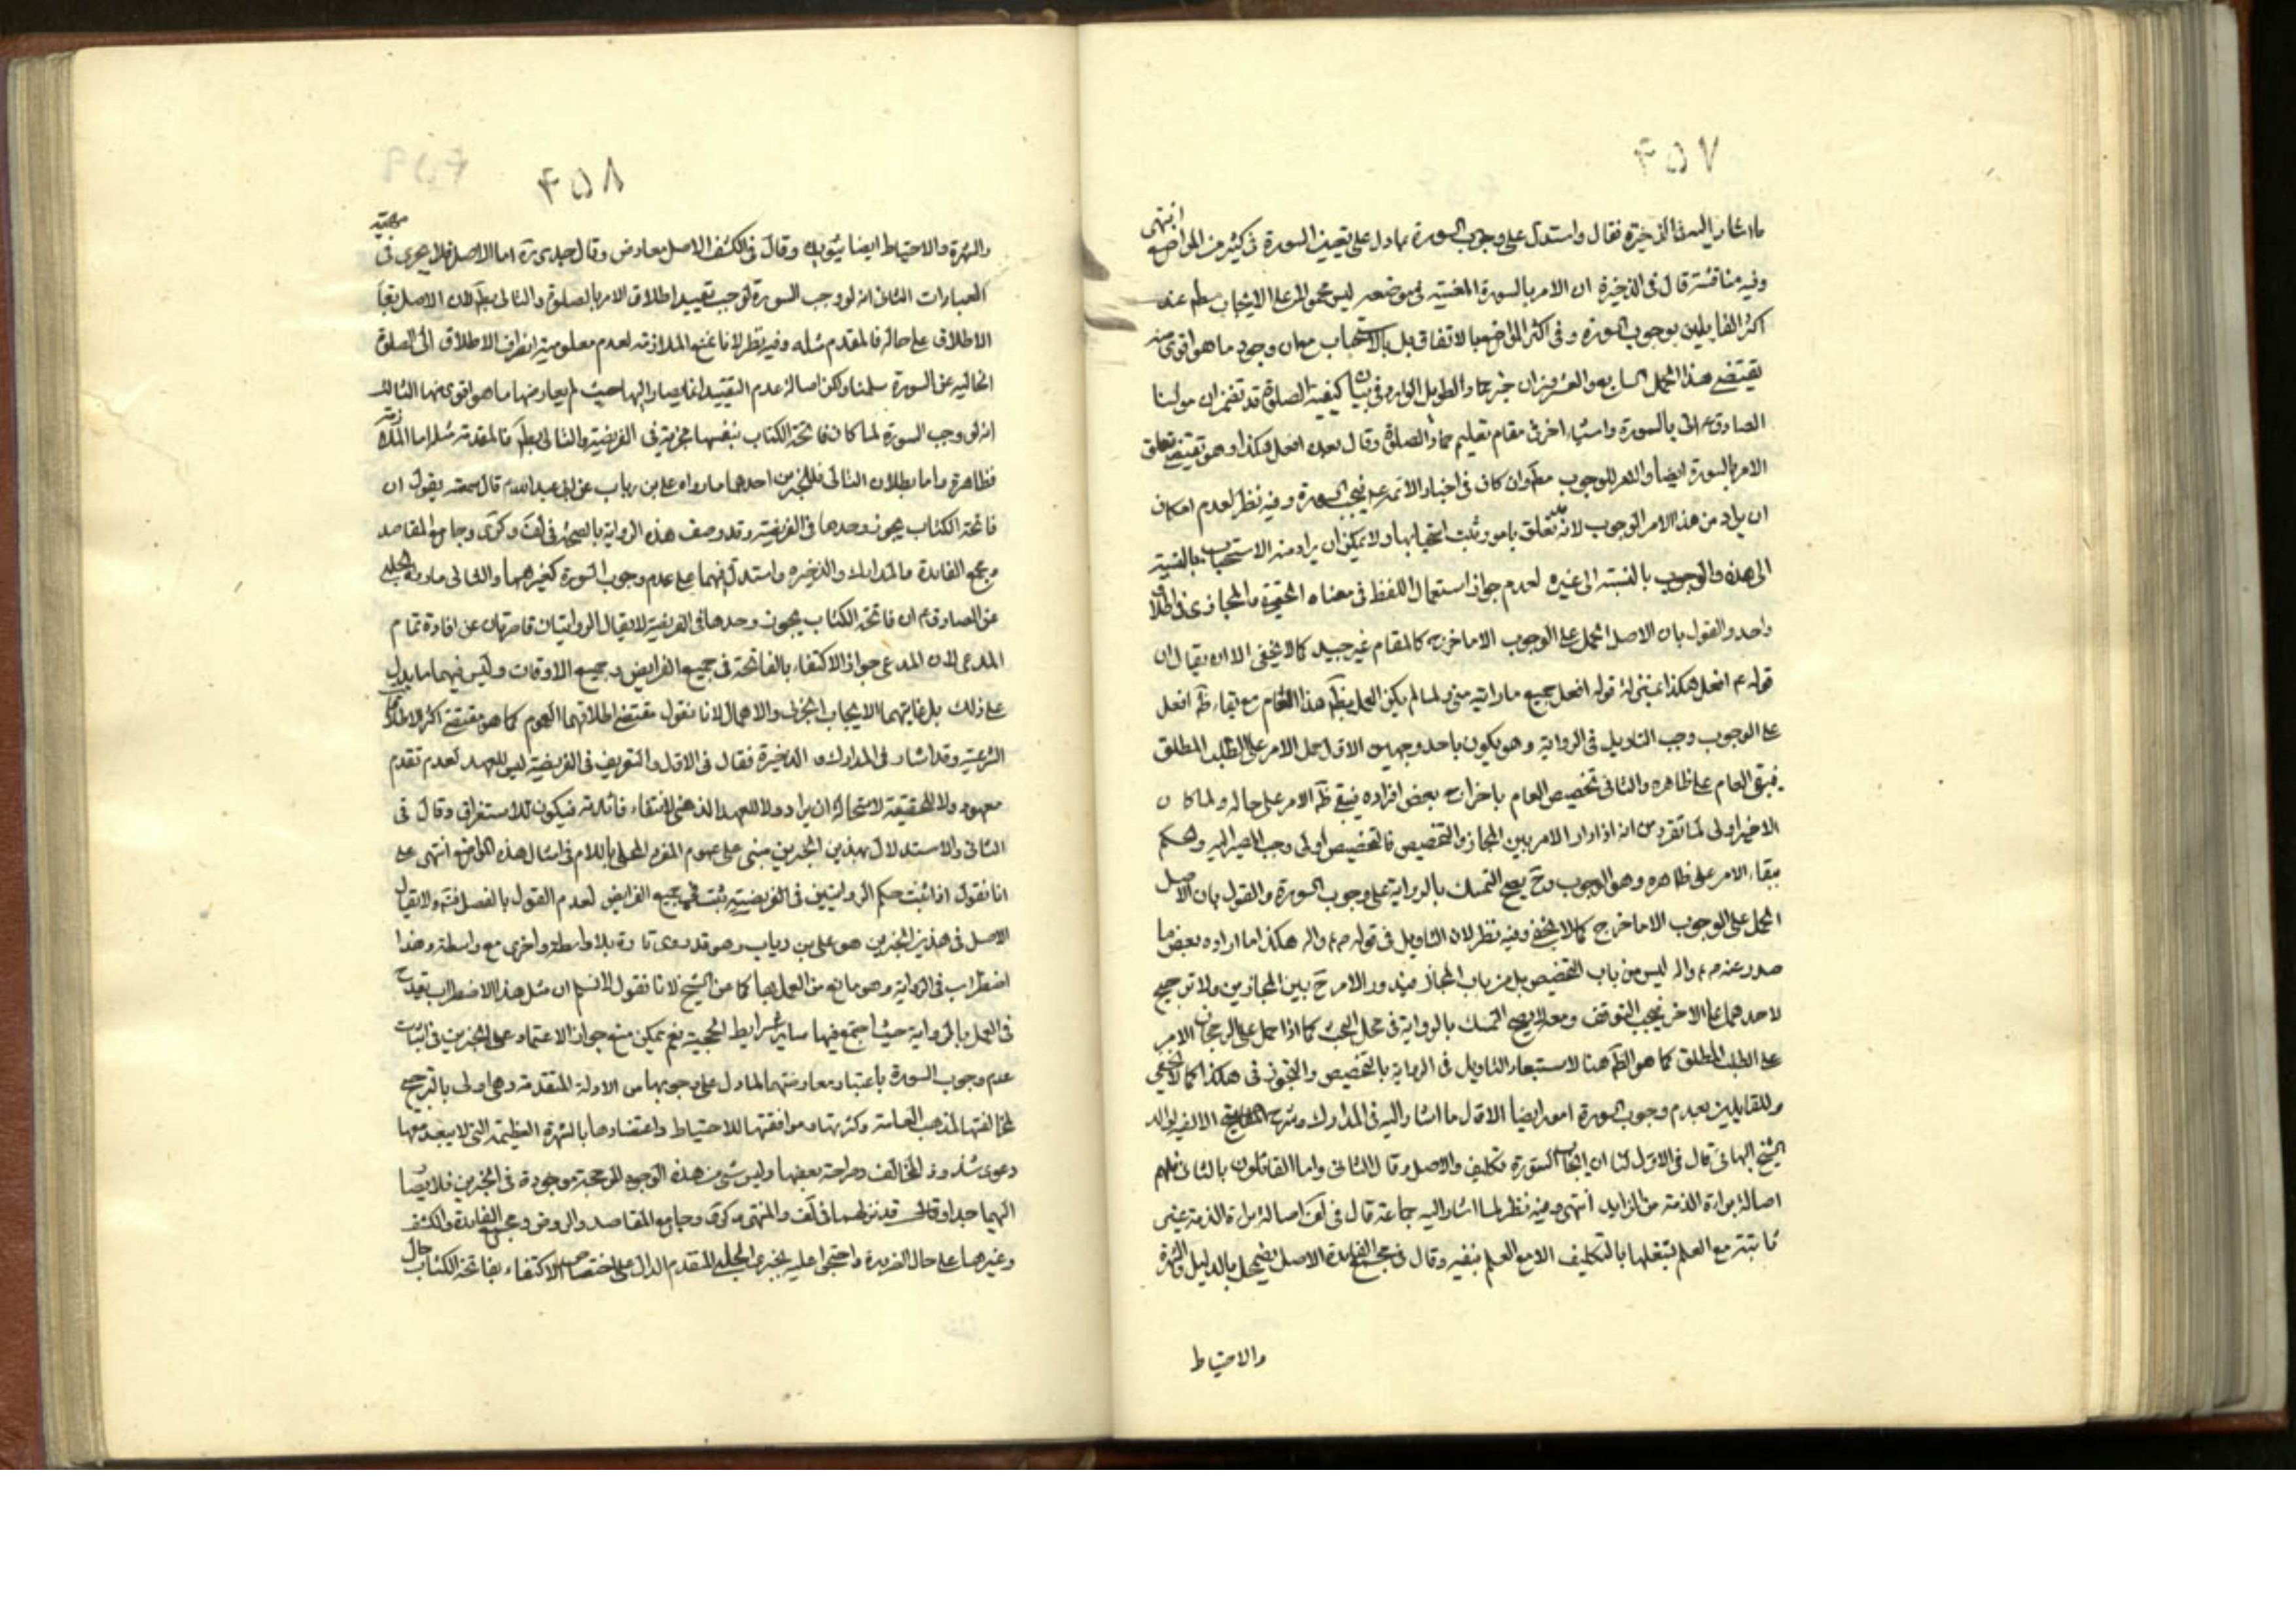 ۴۵۷
ما اشار اليه فى الذخيرة فقال واستدل على وجوب السورة بما دل على تعيين السورة فى كثير من المواضع انتهى
وفيه مناقشة قال فى الذخيرة ان الامر بالسورة المعينة فى موضعه ليس محمولا على الايجاب عند
اكثر القايلين بوجوب السورة وفى اكثر المواضع بالاتفاق بل بالاستحباب وجود ما هو اقوى منه
يقتضى هذا الحمل السابع والعشرون ان خبر حماد الطويل الوارد فى بيان كيفية الصلوة قد تضمن ان مولينا
الصادق ع اتى بالسورة واشياء اخر فى مقام تعليم حماد الصلوة وقال بعده افعل هكذا وهو يقتضى تعلق
الامر بالسورة ايضا والامر للوجوب وان كان فى اخبار الائمة ع فيجب السورة وفيه نظر لعدم امكان
ان يراد من هذا الامر الوجوب لانه تعلق بامور ثبت استحبابها ولا يمكن ان يراد منه الاستحباب بالنسبة
الى هذه والوجوب بالنسبة الى غيره لعدم جواز استعمال اللفظ فى معناه الحقيقى والمجازى فى اطلاق
واحد والقول بان الاصل الحمل على الوجوب الا ما خرج كالمقام غير جيد كما لا يخفى الا ان يقال ان
قوله ع افعل هكذا بمنزلة قوله افعل جميع ما رايته منى ولما لم يكن العمل بظ هذا العام مع بقاء ظ افعل
على الوجوب وجب التاويل فى الرواية وهو يكون باحد وجهين الاول حمل الامر على الطلب المطلق
فيبقى العام على ظاهره والثانى تخصيص العام باخراج بعض افراده فيبقى ظ الامر على حاله ولما كان
الاخير اولى لما تقرر من انه اذا دار الامر بين المجاز والتخصيص فالتخصيص اولى وجب المصير اليه والحكم
ببقاء الامر على ظاهره وهو الوجوب وح يصح التمسك بالرواية على وجوب السورة والقول بان الاصل
الحمل على الوجوب الا ما خرج كما لا يخفى وفيه نظر لان التاويل فى قوله هكذا اما اراده بعض ما
صدر عنه ليس من باب التخصيص بل من باب المجاز فيدور الامر ح بين المجازين ولا ترجيح
لاحدهما على الاخر فيجب التوقف ومعه لا يصح التمسك بالرواية فى محل البحث كما اذا حمل على الرجحان الامر
على الطلب المطلق كما هو الظ هنا لاستبعاد التاويل فى الرواية بالتخصيص والتجوز فى هكذا كما لا يخفى
وللقايلين بعدم وجوب السورة امور ايضا الاول ما اشار اليه فى المدارك وشرح الالفية لوالد
الشيخ البهائى قال فى الاول لنا ان ايجاب السورة تكليف والاصل وقال الثانى واما القائلون بالثانى فلهم
اصالة براءة الذمة من الزايد انتهى وفيه نظر لما اشار اليه جماعة قال فى لف اصالة براءة الذمة غير
ثابتة مع العلم بشغلها بالتكليف الا مع العلم بنفيه وقال فى مجمع الفايدة الاصل يضمحل بالدليل والشهرة
والاحتياط
۴۵۸
والشهرة والاحتياط ايضا يؤيده وقال فى الكشف الاصل معارض وقال جدى ره اما الاصل فلا يجرى فى مهية
العبارات الثانى انه لو وجب السورة لوجب تقييد اطلاق الامر بالصلوة والتالى بط لان الاصل بقاء
الاطلاق على حاله فالمقدم مثله وفيه نظر لانا نمنع الملازمة لعدم معلومية انصراف الاطلاق الى الصلوة
الخالية عن السورة سلمنا ولكن اصالة عدم التقييد انما يصار اليها حيث لم يعارضها ما هو اقوى منها الثالث
انه لو وجب السورة لما كان فاتحة الكتاب بنفسها مجزية فى الفريضة والتالى بط فالمقدم مثله اما الملازمة
فظاهرة واما بطلان التالى فللخبرين احدهما ما رواه على بن رياب عن ابى عبد الله ع قال سمعته يقول ان
فاتحة الكتاب يجوز وحدها فى الفريضة وقد وصف هذه الرواية بالصحة فى لف وكرى وجامع المقاصد
ومجمع الفايدة والمدارك والذخيره واستدل فيها على عدم وجوب السورة كغيرها والثانى ما رواه الحلبى
عن الصادق ع ان فاتحة الكتاب يجوز وحدها فى الفريضة لا يقال الروايتان قاصرتان عن افادة تمام
المدعى لان المدعى جواز الاكتفاء بالفاتحة فى جميع الفرايض وجميع الاوقات وليس فيهما ما يدل
على ذلك بل غايتهما الايجاب الجزئى والاهمال لانا نقول مقتضى اطلاقهما العموم كما هو مقتضى اكثر الاطلاقات
الشرعية وقد اشار فى المدارك والذخيرة فقال فى الاول والتعريف فى الفريضة ليس للعهد لعدم تقدم
معهود ولا للحقيقة لاستحالة ان يراد ولا للعهد الذهنى لانتفاء فائدته فيكون للاستغراق وقال فى
الثانى والاستدلال بهذين الخبرين مبنى على عموم المفرد المحلى باللام فى امثال هذه المواضع انتهى على
انا نقول اذا ثبت حكم الروايتين فى الفريضة ثبت فى جميع الفرايض لعدم القول بالفصل فتم ولا يقال
الاصل فى هذين الخبرين هو على بن رياب وهو قد روى تارة بلا واسطة واخرى مع واسطة وهذا
اضطراب فى الرواية وهو مانع من العمل بها كما عن الشيخ لانا نقول لا نسلم ان مثل هذا الاضطراب يقدح
فى العمل بالرواية حيث اجتمع فيها ساير شرايط الحجية نعم يمكن منع جواز الاعتماد على الخبرين فى اثبات
عدم وجوب السورة باعتبار معارضتهما لما دل على وجوبها من الادلة المتقدمة وهى اولى بالترجيح
لمخالفتها لمذهب العامة وكثرتها وموافقتها للاحتياط واعتضادها بالشهرة العظيمة التى لا يبعد معها
دعوى شذوذ المخالف وصراحة بعضها وليس شئ من هذه الوجوه المرجحة موجودة فى الخبرين فلا يصار
اليهما جدا وقد نزلهما فى لف والمنتهى وكرى وجامع المقاصد والروض ومجمع الفايدة والكشف
وغيرها على حال الضرورة واحتجوا عليه بخبرى الحلبى المتقدم الدال على اختصاص الاكتفاء بفاتحة الكتاب حال